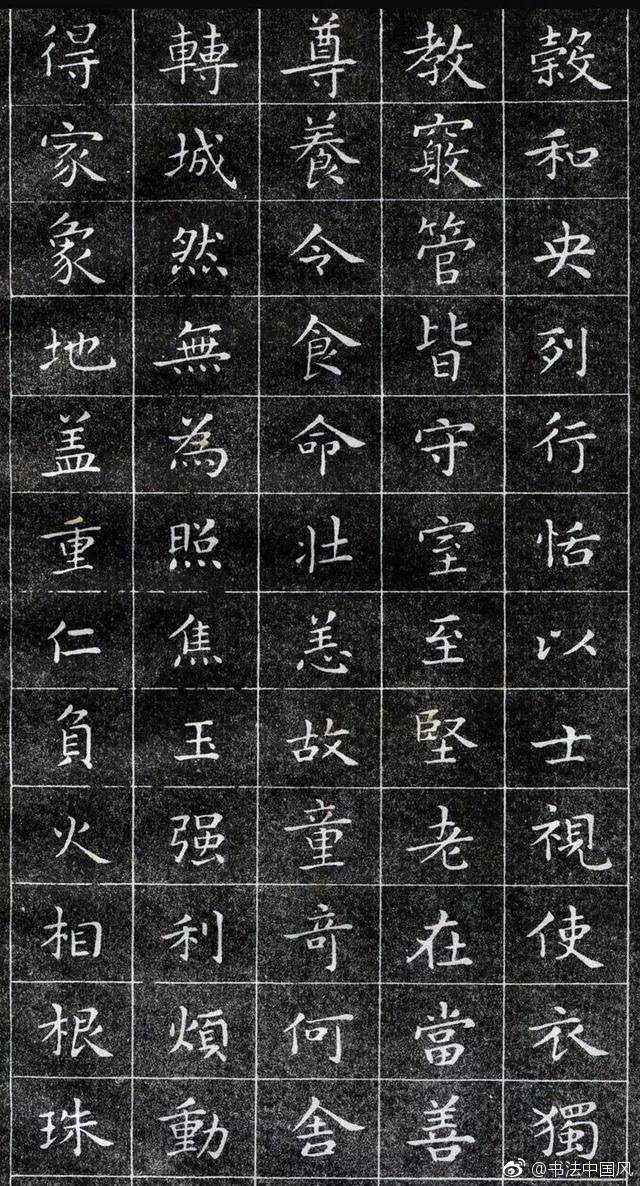 榖和央列行恬以士視使衣獨
教窮管皆守室至堅老在當善
尊養令食命壯恙故童奇何舍
轉城然無為照焦玉强利煩動
得家象地盖重仁負火相根珠
@书法中国风